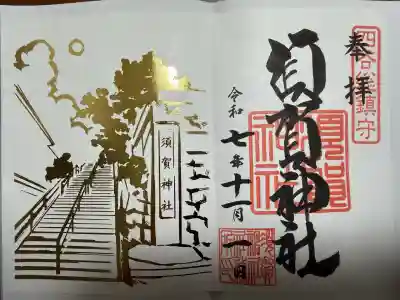 奉拝
四谷総鎮守
須賀神社
須賀神社
令和七年十一月一日
須賀神社